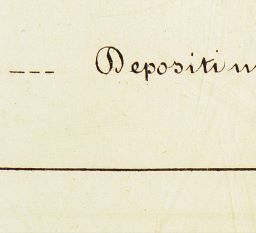 --- Depositin